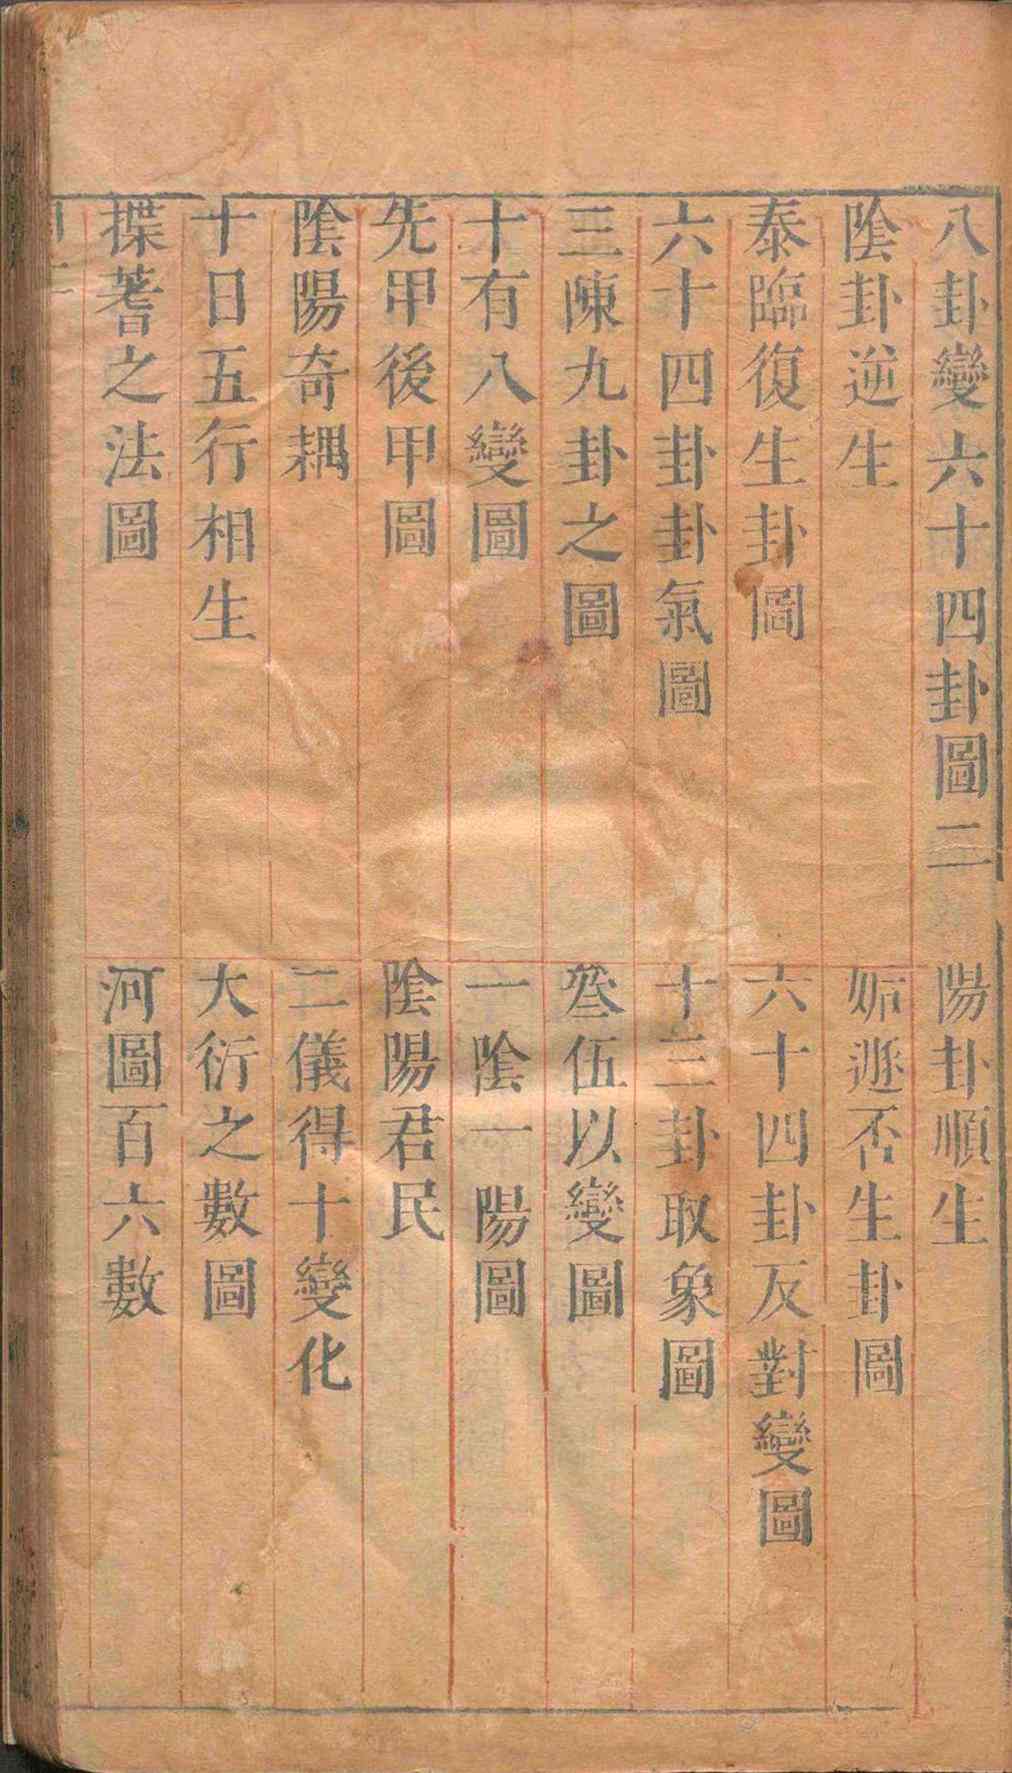 八卦變六十四卦圖二　陽卦順生
陰卦逆生　姤遯否生卦圖
泰臨復生卦圖　六十四卦反對變圖
六十四卦卦氣圖　十三卦取象圖
三陳九卦之圖　叅伍以變圖
十有八變圖　一陰一陽圖
先甲後甲圖　陰陽君民
陰陽奇耦　二儀得十變化
十日五行相生　大衍之數圖
揲蓍之法圖　河圖百六數